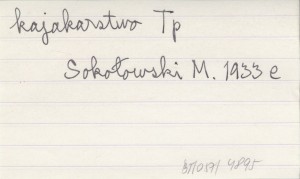 kajakarstwo Tp
Sokołowski M. 1933 e
4895